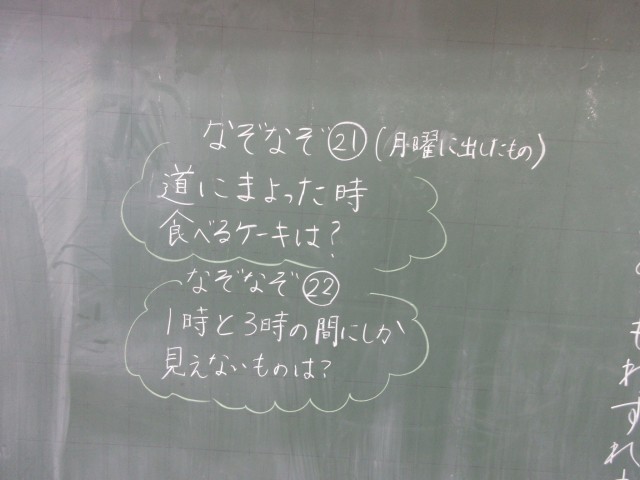 なぞなぞ㉑(月曜に出したもの)
道にまよった時
食べるケーキは?
なぞなぞ㉒
1時と3時の間にしか
見えないものは?
もわすれ